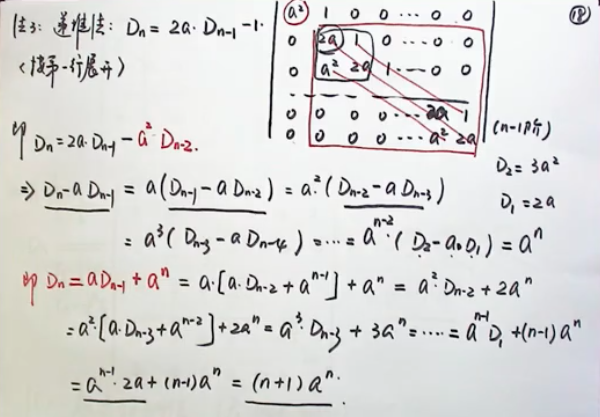 法3: 递推法: Dn = 2a·Dn-1 -1· |a² 1 0 0 ⋯ 0 0| ⑱
〈按第一行展开〉 |0 2a 1 0 ⋯ 0 0|
|0 a² 2a 1 ⋯ 0 0|
|0 0 0 0 ⋯ 2a 1|
|0 0 0 0 ⋯ a² 2a| (n-1阶)
即 Dn = 2a·Dn-1 - a²·Dn-2.
D₂ = 3a²
D₁ = 2a
⇒ Dn - aDn-1 = a(Dn-1 - aDn-2) = a²·(Dn-2 - aDn-3)
= a³(Dn-3 - aDn-4) = ⋯ = aⁿ⁻²·(D₂ - a·D₁) = aⁿ
即 Dn = aDn-1 + aⁿ = a·[a·Dn-2 + aⁿ⁻¹] + aⁿ = a²·Dn-2 + 2aⁿ
= a²·[a·Dn-3 + aⁿ⁻²] + 2aⁿ = a³·Dn-3 + 3aⁿ = ⋯ = aⁿ⁻¹D₁ + (n-1)aⁿ
= aⁿ⁻¹·2a + (n-1)aⁿ = (n+1)aⁿ.